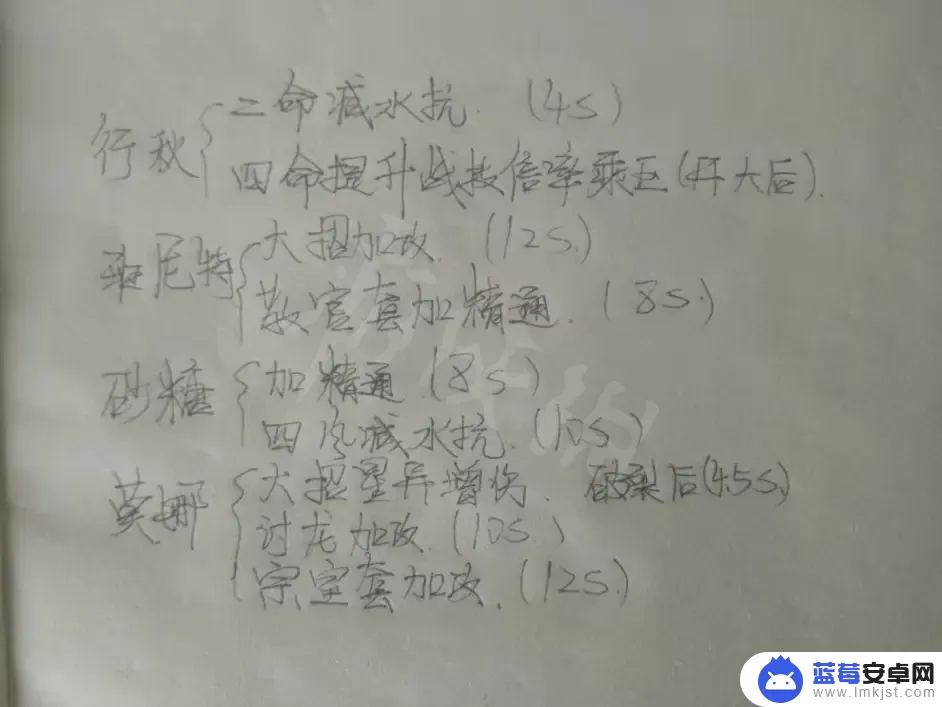 行秋 二命减水抗. (4s)
四命提升战技倍率乘区(开大后).
班尼特 大招加攻. (12s.)
教官套加精通. (8s.)
砂糖 加精通 (8s)
四风减水抗. (10s)
莫娜 大招星异增伤. 破裂后(4.5s.)
讨龙加攻. (10s.)
宗室套加攻. (12s.)
蓝莓安卓网
www.lmkjst.com